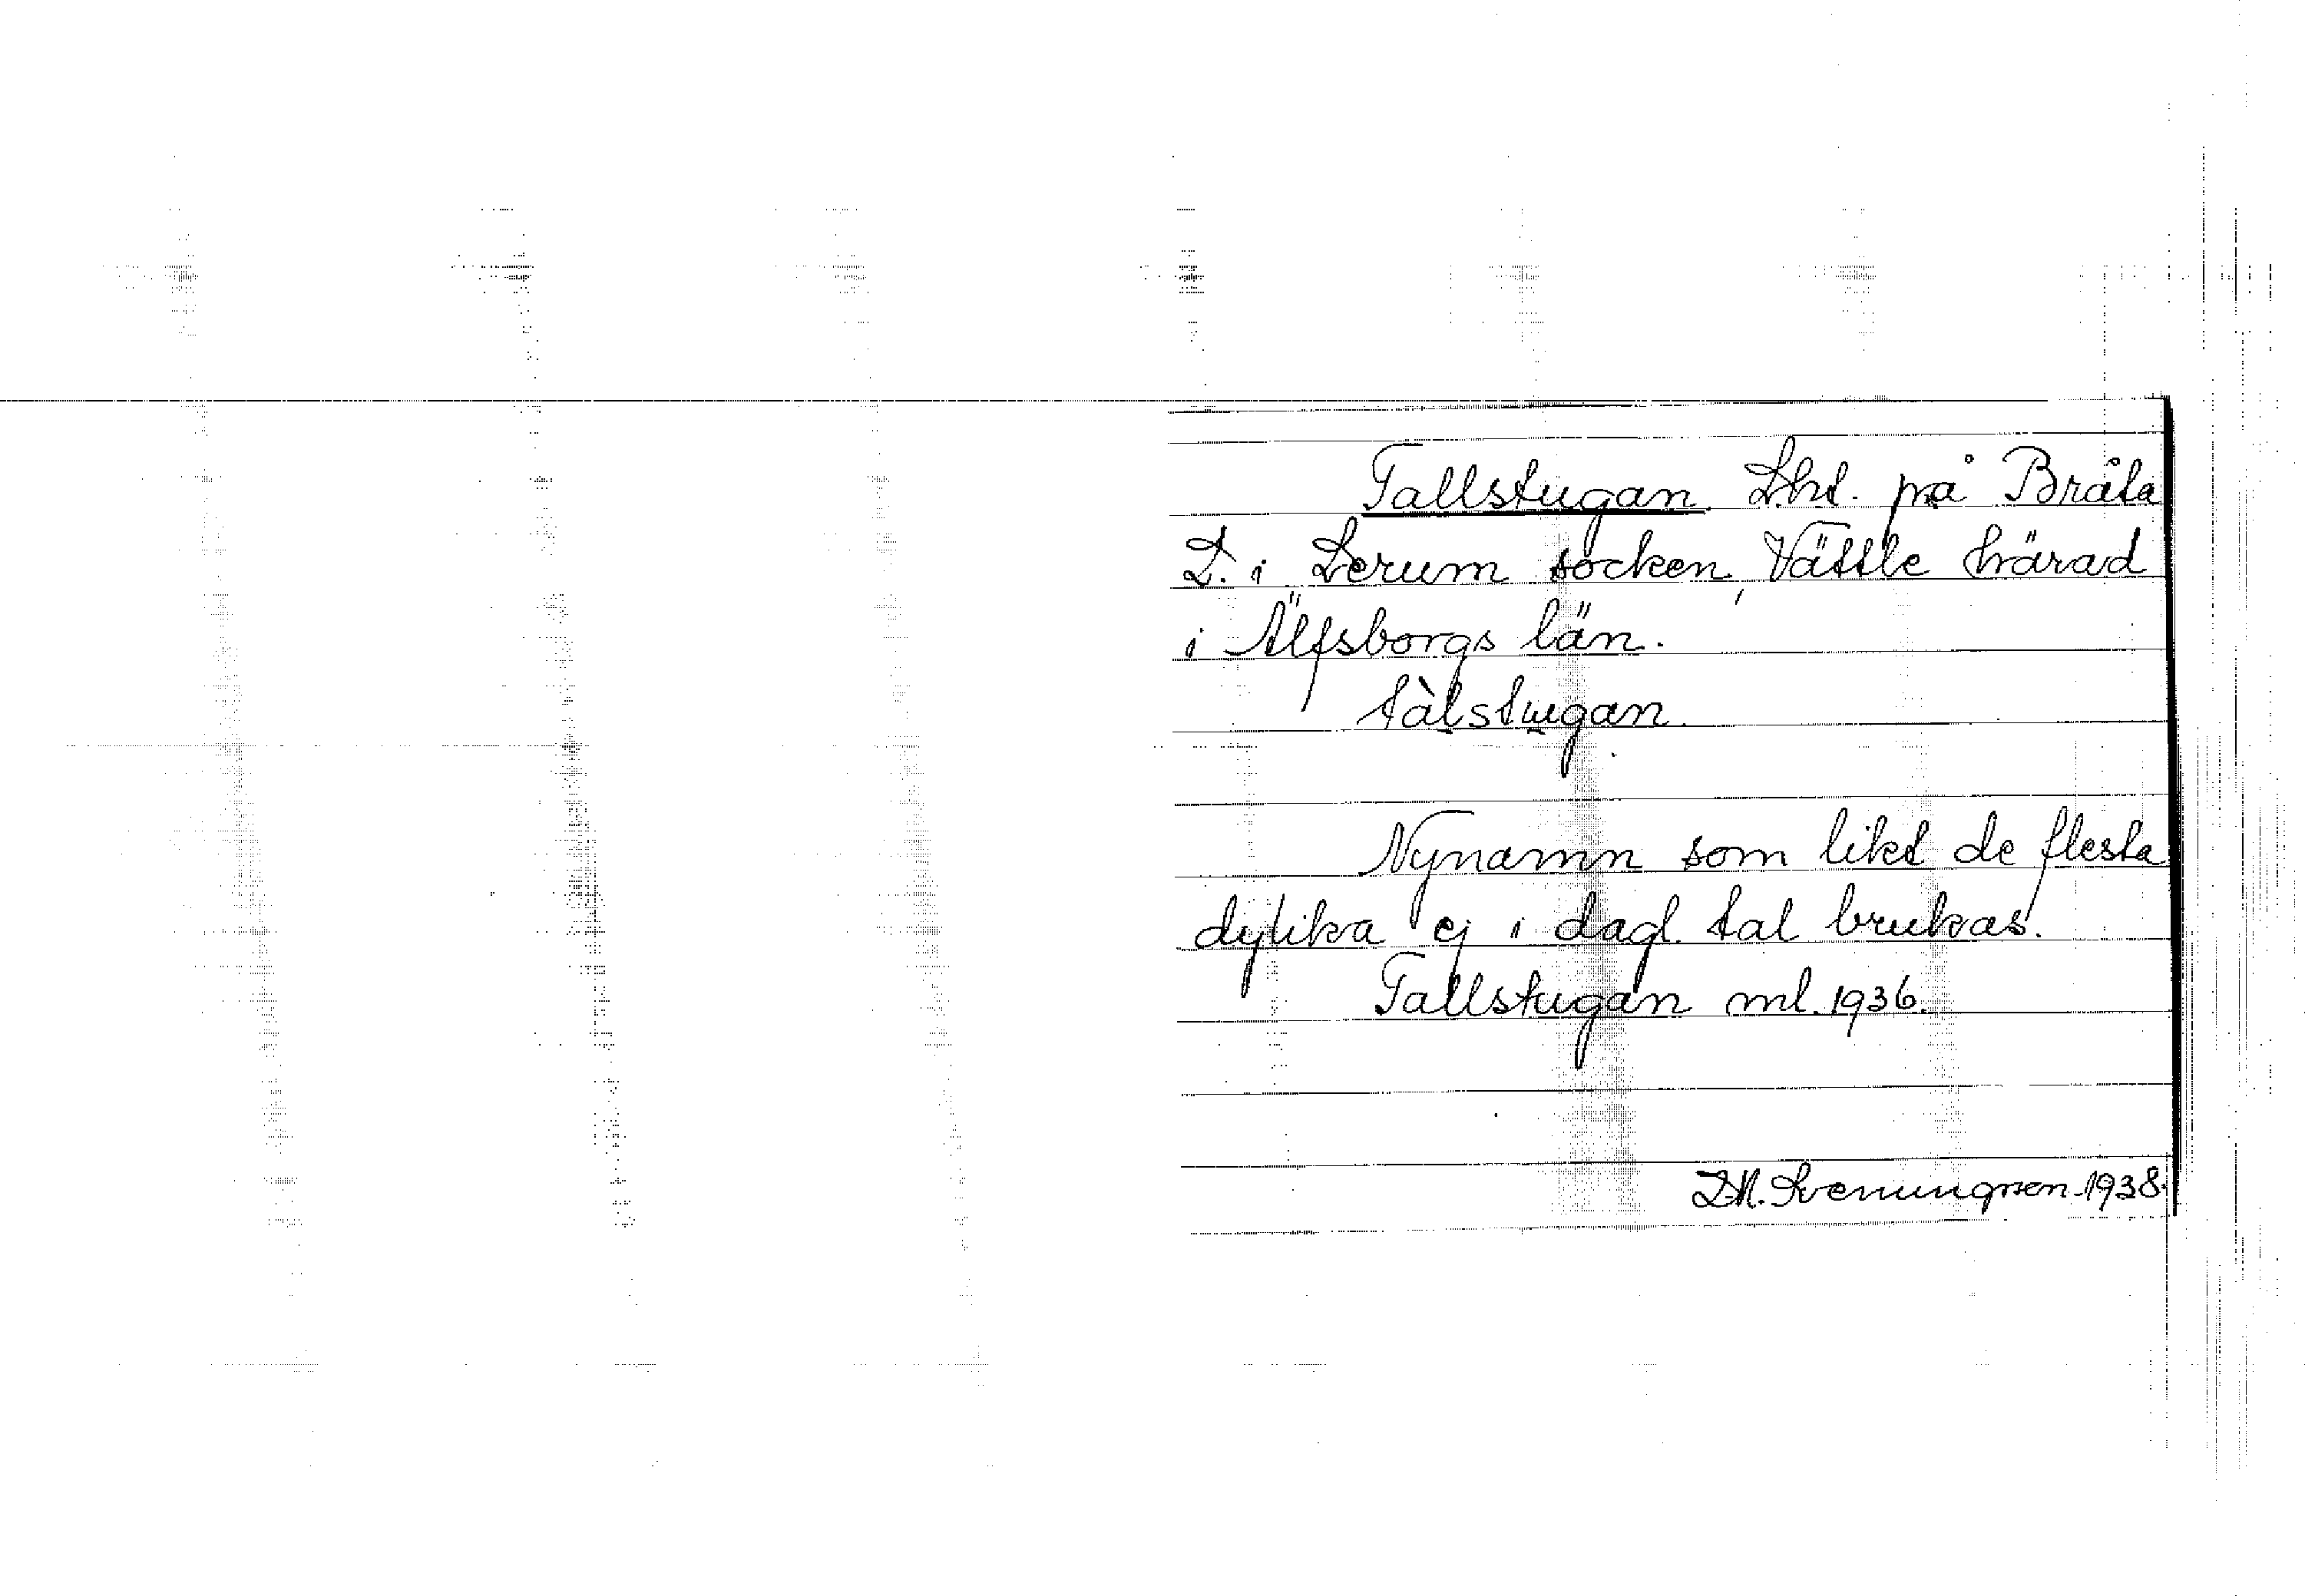 Tallstugan. Lht. på Bråta
2. i Lerum socken, Vättle härad
i Älfsborgs län.
tàlstugan.
Nynamn som likt de flesta
dylika ej i dagl. tal brukas.
Tallstugan ml. 1936.
Svenungsson 1938.